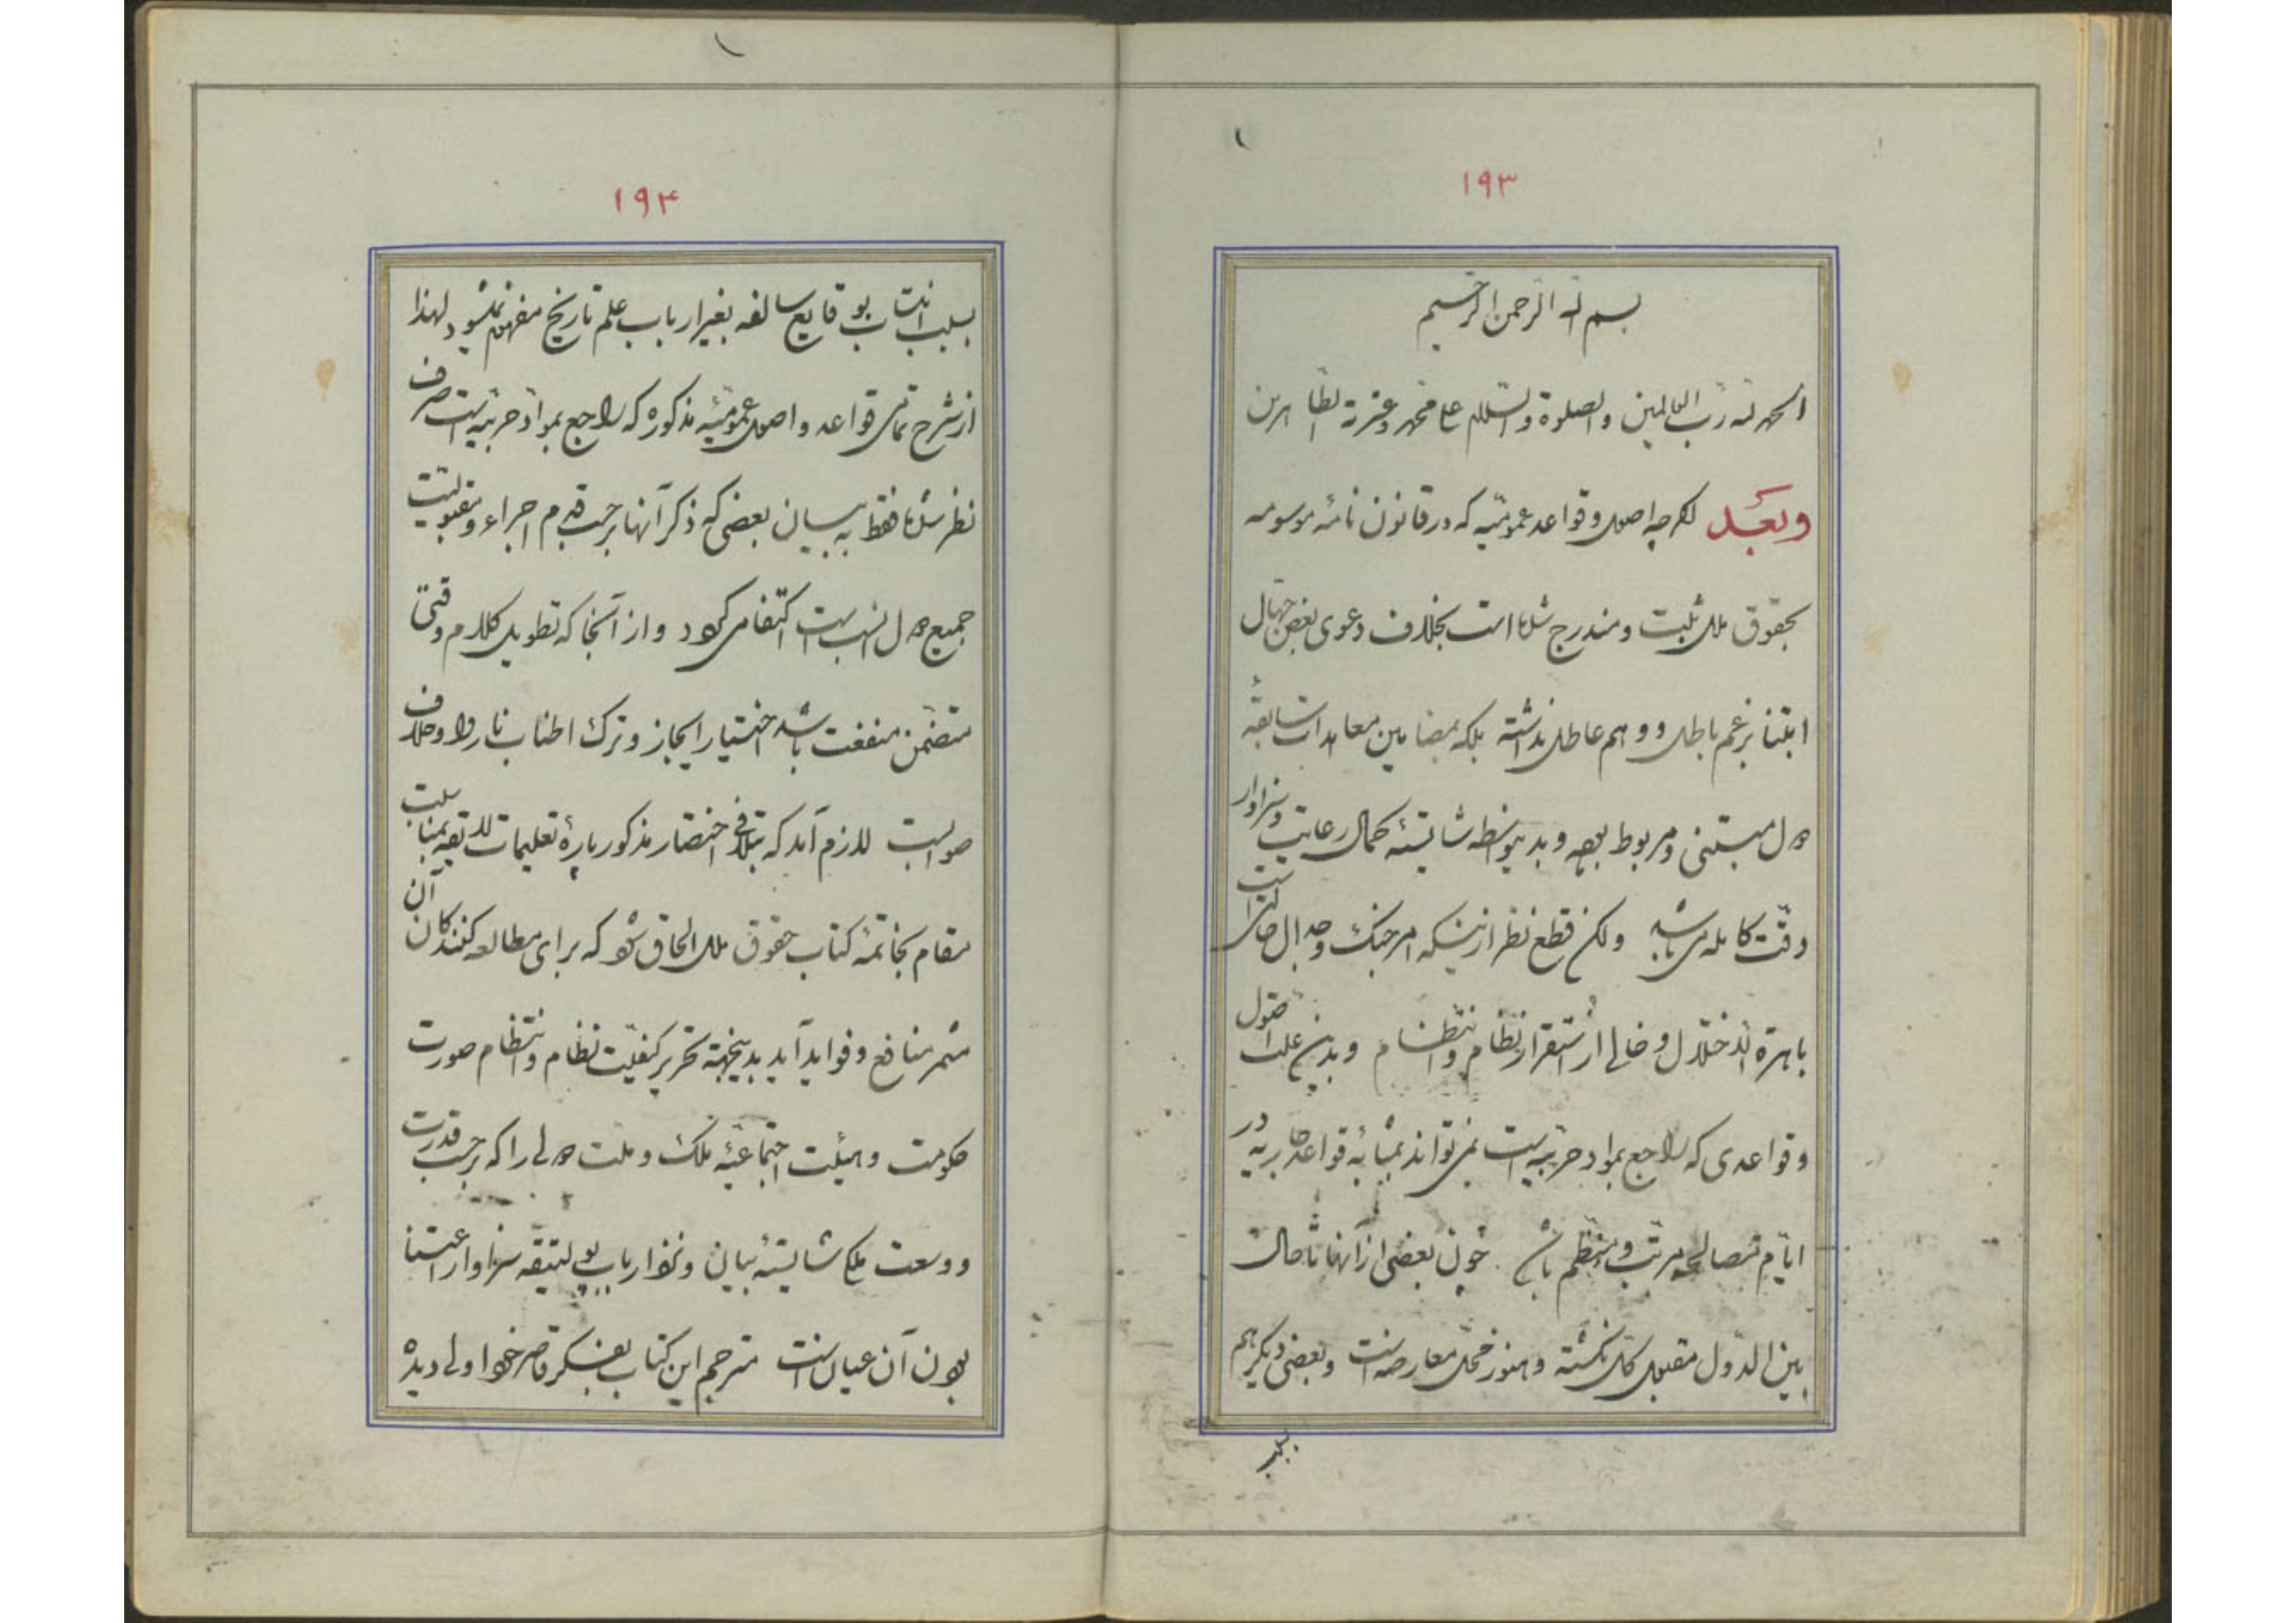 ۱۹۳
بسم الله الرحمن الرحیم
الحمد لله رب العالمین والصلوة والسلام علی محمد وعترته الطاهرین
وبعد اگرچه اصول و قواعد عمومیه که در قانون نامهٔ موسومه
بحقوق ملل ثبت و مندرج شده است بخلاف دعوی بعض جهال
ابتنا بر زعم باطل و وهم عاطل نداشته بلکه بمضامین معاهدات سابقهٔ
دول مبتنی و مربوط بوده و بدینواسطه شایستهٔ کمال رعایت و سزاوار
دقت کامله می باشد ولکن قطع نظر از اینکه امر جنگ و جدال حالتی است
باهرة الاختلال و خالی از استقرار نظام و انتظام و بدین علت اصول
و قواعدی که راجع بمواد حربیه است نمی تواند بمثابهٔ قواعد جاریه در
ایام مصالحه مرتب و منظم باشد چون بعضی از آنها تا حال
بین الدول مقبول کل نگشته و هنوز محل معارضه است و بعضی دیگر هم
بسبب
۱۹۴
بسبب انتساب بوقایع سالفه بغیر ارباب علم تاریخ مفهوم نمیشود لهذا
از شرح تمامی قواعد و اصول عمومیهٔ مذکوره که راجع بمواد حربیه است صرف
نظر شده فقط به بیان بعضی که ذکر آنها بر حسب قدم اجراء و مقبولیت
جمیع دول انسب است اکتفا می گردد و از آنجا که تطویل کلام وقتی
متضمن منفعت باشد اختیار ایجاز و ترک اطناب ناروا و خلاف
صوابست لازم آمد که بتلافی اختصار مذکور پارهٔ تعلیمات لایقه بمناسبت
مقام بخاتمهٔ کتاب حقوق ملل الحاق شود که برای مطالعه کنندگان آن
مثمر منافع و فواید آید بدینجهة تحریر کیفیت نظام و انتظام صورت
حکومت و هیئت اجتماعیهٔ ملک و ملت دولی را که بر حسب قدرت
و وسعت ملک شایستهٔ بیان و نزد ارباب پولیتیقه سزاوار اعتنا
بودن آن عیان است مترجم این کتاب بفکر قاصر خود اولی دیده